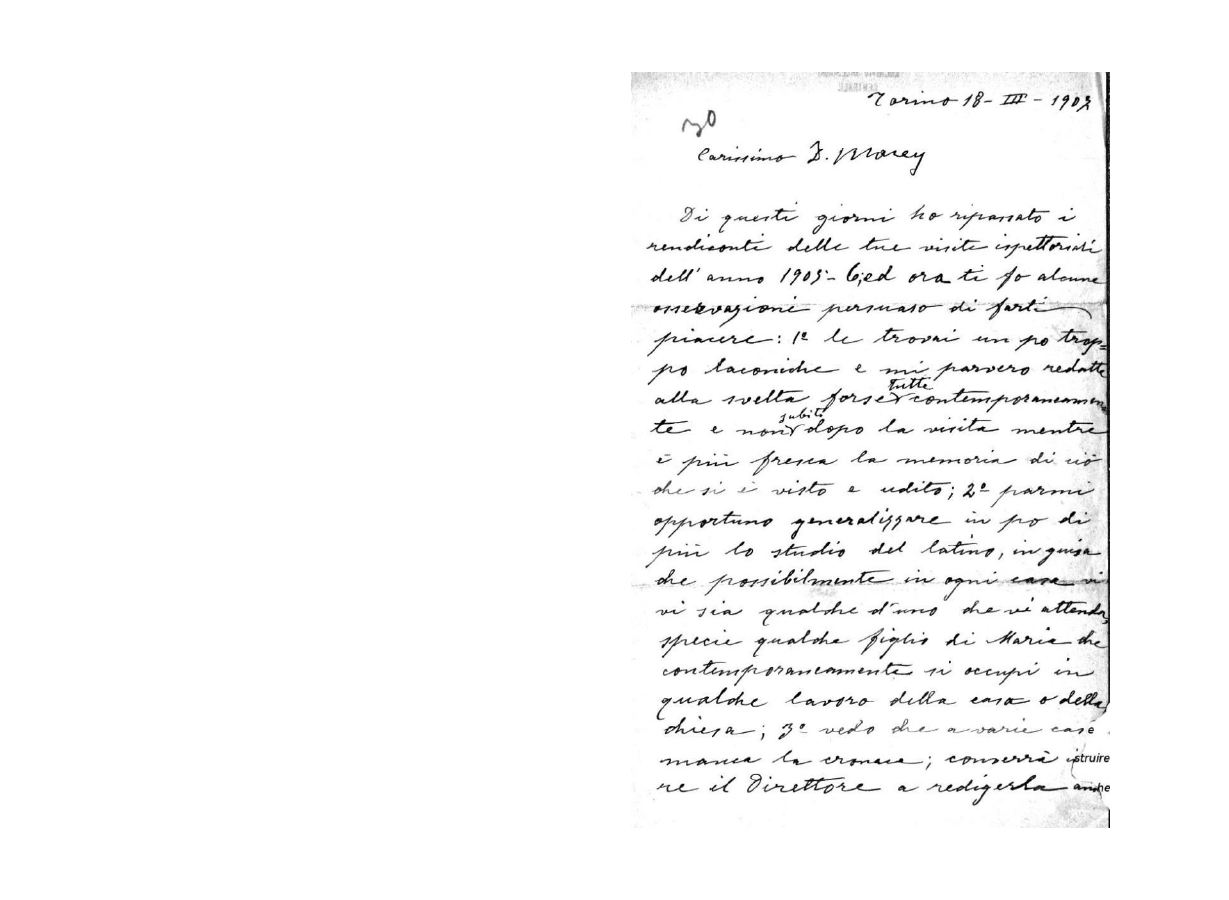 Torino 18 - III - 1907
30
Carissimo D. Macey
Di questi giorni ho ripassato i
rendiconti delle tue visite ispettoriali
dell'anno 1905-6, ed ora ti fo alcune
osservazioni persuaso di farti
piacere: 1º le trovai un po trop=
po laconiche e mi parvero redatte
tutte
alla svelta forse contemporaneamen
subito
te e non dopo la visita mentre
è più fresca la memoria di ciò
che si è visto e udito; 2º parmi
opportuno generalizzare in po di
più lo studio del latino, in guisa
che possibilmente in ogni casa vi
vi sia qualche d'uno che vi attenda,
specie qualche figlio di Maria che
contemporaneamente si occupi in
qualche lavoro della casa o della
chiesa; 3º vedo che a varie case
manca la cronaca; converrà istruire
re il Direttore a redigerla anche